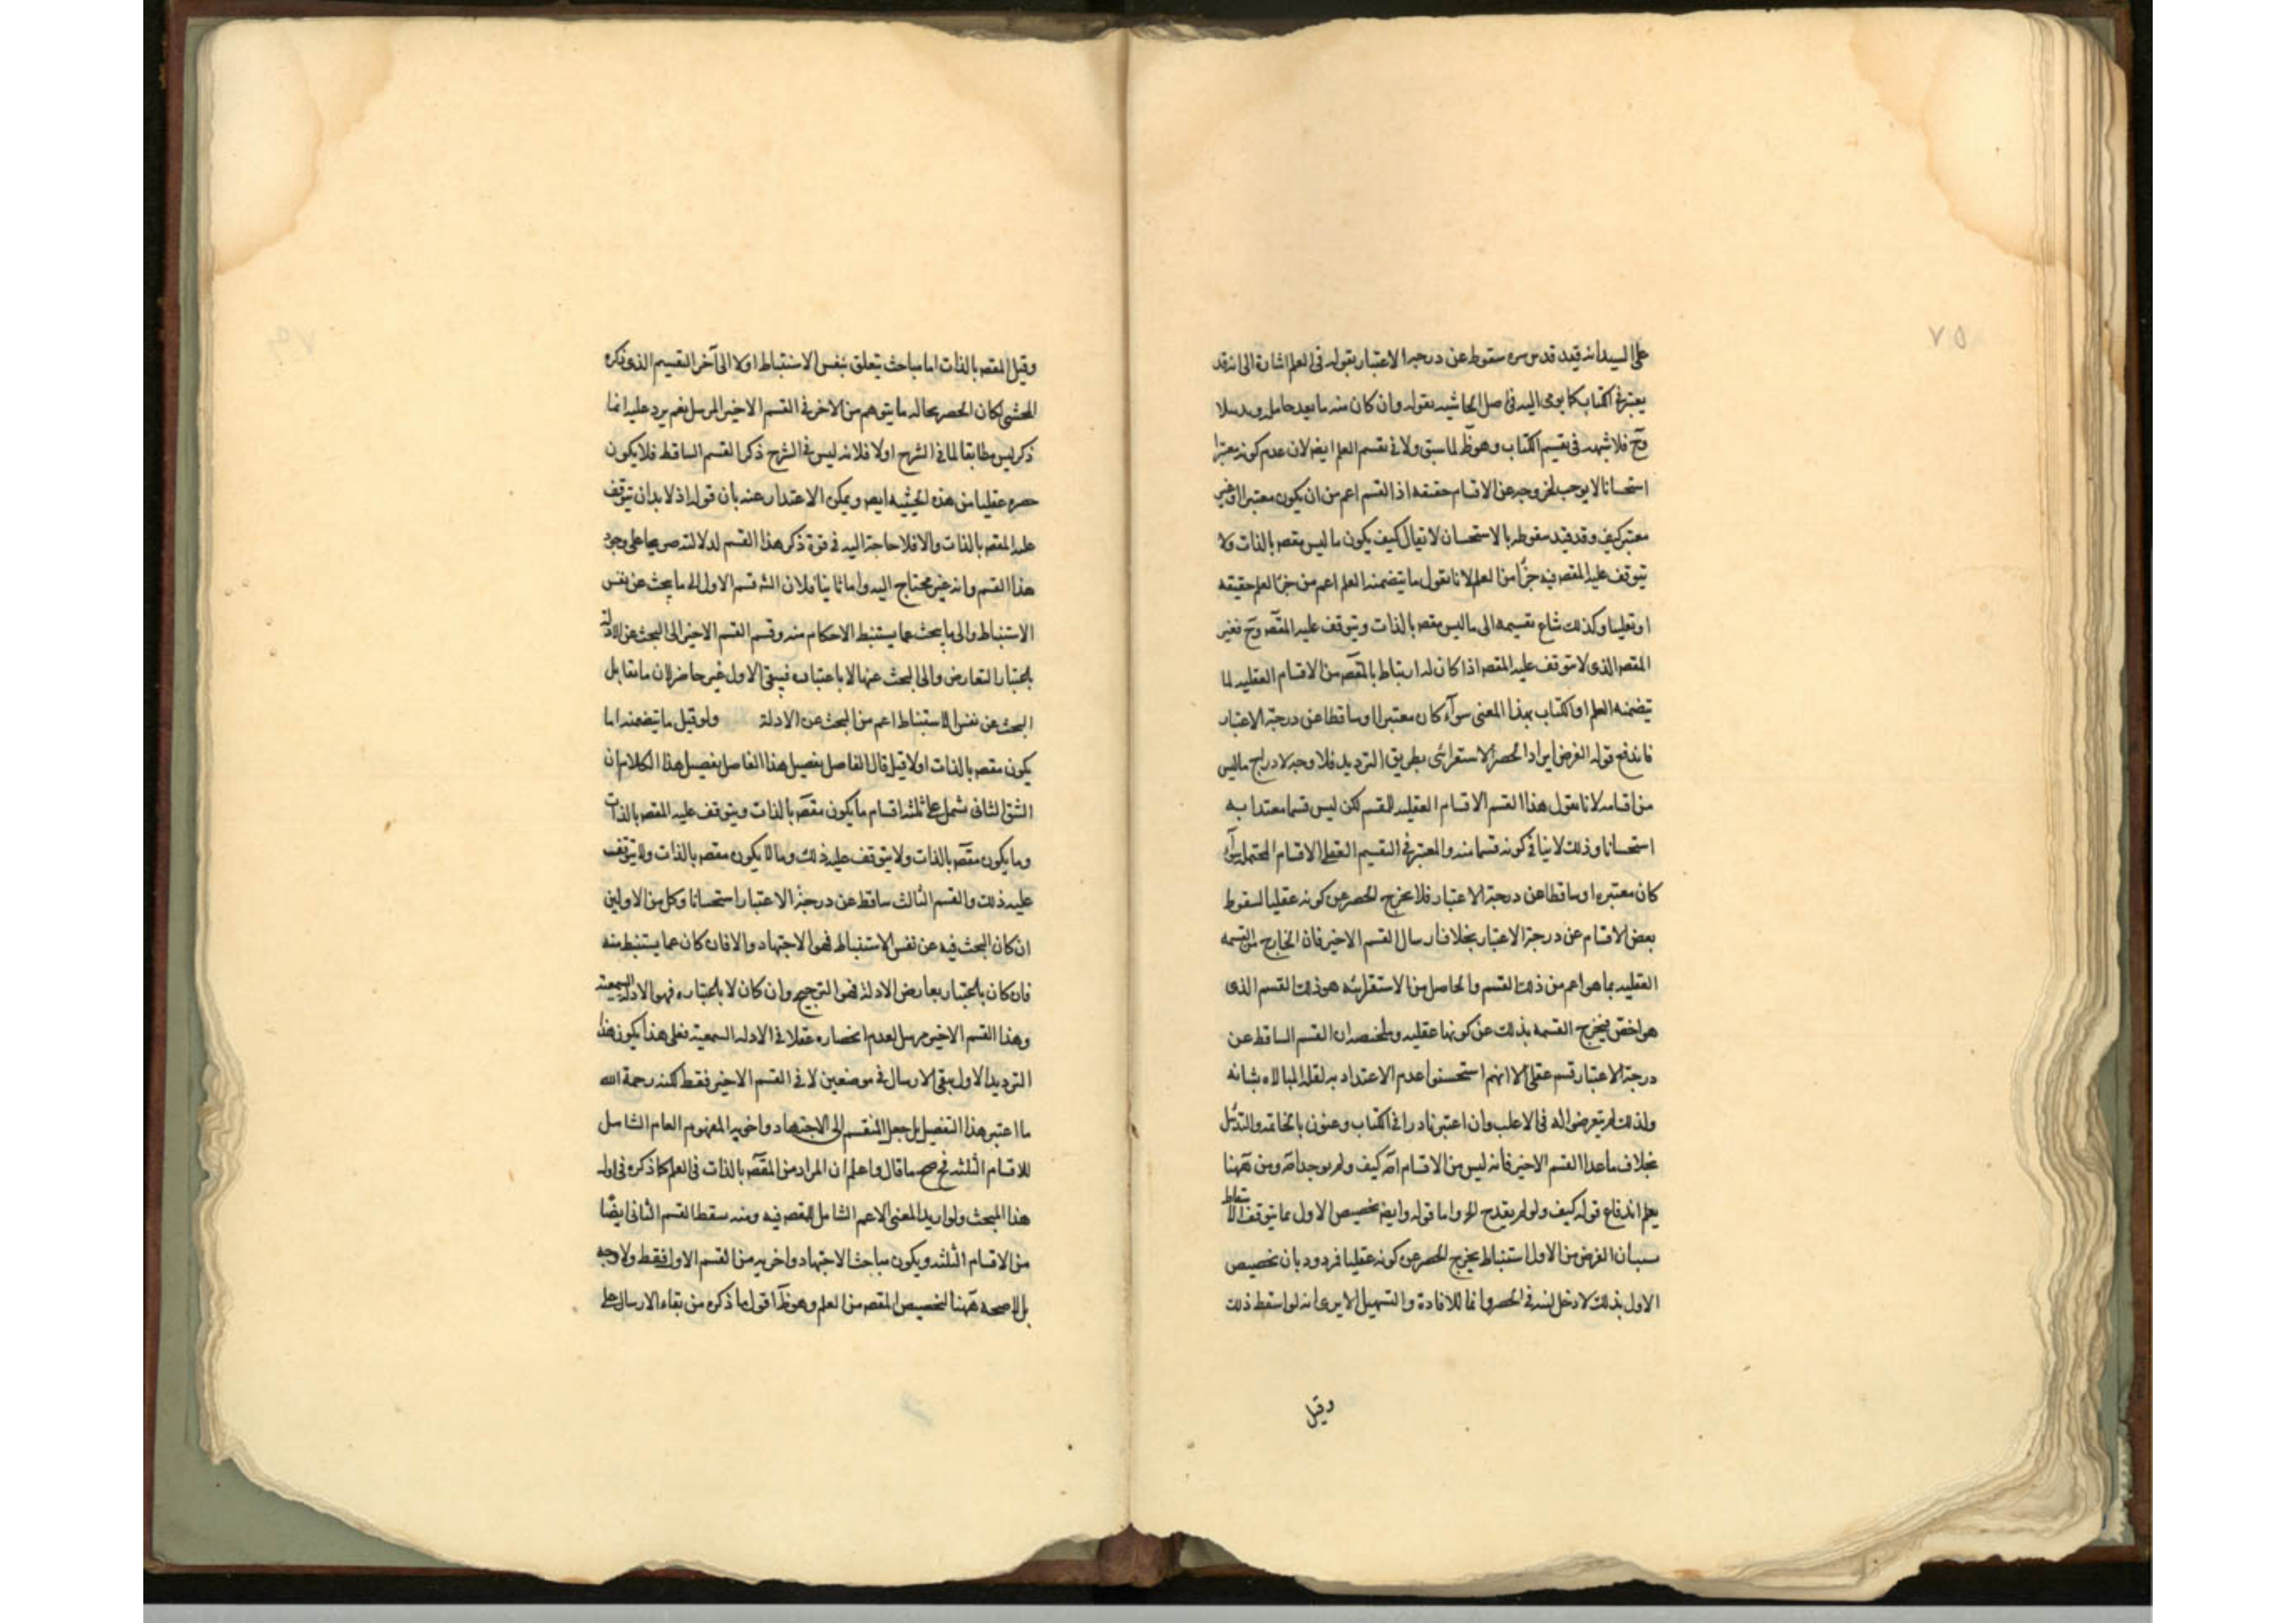 ٧٥
على السيد انه قيد قدس سره سقوطه عن درجه الاعتبار بقوله فى العلم اشارة الى انه قد
يعتبر فى الكتاب كما يومى اليه فى اصل الحاشيه بقوله وان كان منه ما يعد حامله
وح فلا شبهه فى تقسيم الكتاب وهو ظ لما سبق ولا فى تقسيم العلم ايضا لان عدم كونه معتبرا
استحسانا لا يوجب لخروجه عن الاقسام حقيقه اذ القسم اعم من ان يكون معتبرا او غير
معتبر كيف وقد قيد سقوطه بالاستحسان لا يقال كيف يكون ما ليس مقصه بالذات ولا
يتوقف عليه المقصه فيه جزًا من العلم لانا نقول ما يتضمنه العلم اعم من جزء العلم حقيقه
او تغليبا وكذلك شاع تقسيمه الى ما ليس مقصه بالذات ويتوقف عليه المقصه وح فغير
المقصه الذى لا يتوقف عليه المقصه اذا كان له ارتباط بالمقصه من الاقسام العقليه لما
يتضمنه العلم او الكتاب بهذا المعنى سوآء كان معتبرا او ساقطا عن درجة الاعتبار
فاندفع قوله الغرض ايراد الحصر الاستقرائى بطريق الترديد فلا وجه لادراج ما ليس
من اقسامه لانا نقول هذا القسم الاقسام العقليه للقسم لكن ليس قسما معتدا به
استحسانا وذلك لا ينافى كونه قسما منه والمعتبر فى التقسيم العقلى الاقسام المحتمله سوآء
كان معتبره او ساقطا عن درجة الاعتبار فلا يخرج الحصر عن كونه عقليا لسقوط
بعض الاقسام عن درجة الاعتبار بخلاف ارسال القسم الاخير فان الخارج من القسمه
العقليه بما هو اعم من ذلك القسم والحاصل من الاستقرائيه هو ذلك القسم الذى
هو اخص فيخرج القسمه بذلك عن كونها عقليه وملخصه ان القسم الساقط عن
درجة الاعتبار قسم عقلى الا انهم استحسنوا عدم الاعتداد به لقله المبالاه بشانه
ولذلك لم يتعرضوا له فى الاغلب وان اعتبر نادرا فى الكتاب وعنون بالخاتمه والتذييل
بخلاف ما عدا القسم الاخير فانه ليس من الاقسام اصه كيف ولم يوجد اصه ومن ههنا
يعلم اندفاع قوله كيف ولو لم يقدح الخ واما قوله وايضه تخصيص الاول بما يتوقف الاستنباط
سببان الغرض من الاول استنباط يخرج الحصر عن كونه عقليا فمردود بان تخصيص
الاول بذلك لا دخل له فى الحصر وانما للافادة والتسهيل الا يرى انه لو اسقط ذلك
وقيل
وقيل المقصه بالذات اما مباحث يتعلق بنفس الاستنباط اولا الى آخر التقسيم الذى ذكره
المحشى لكان الحصر بحاله ما يتوهم من الاخر فى القسم الاخير المرسل نعم يرد عليه انما
ذكر ليس مطابقا لما فى الشرح اولا فلانه ليس فى الشرح ذكر القسم الساقط فلا يكون
حصره عقليا من هذه الحيثيه ايضه ويمكن الاعتذار عنه بان قوله اذ لا بد ان يتوقف
عليه المقصه بالذات والا فلا حاجة اليه فى قوة ذكر هذا القسم لدلالته صريحا على وجود
هذا القسم وانه غير محتاج اليه واما ثانيا فلان الشه قسم الاول الى ما يبحث عن نفس
الاستنباط والى ما يبحث عما يستنبط الاحكام منه وقسم القسم الاخير الى البحث عن الادلة
باعتبار التعارض والى البحث عنها لا باعتباره فيبقى الاول غير حاضر لان ما يقابل
البحث عن نفس الاستنباط اعم من البحث عن الادلة ولو قيل ما يتضمنه اما
يكون مقصه بالذات اولا قيل قال الفاصل بفصيل هذا الفاصل بفصيل هذا الكلام ان
الشق الثانى شمل على ثلثه اقسام ما يكون مقصه بالذات ويتوقف عليه المقصه بالذات
وما يكون مقصه بالذات ولا يتوقف عليه ذلك وما لا يكون مقصه بالذات ولا يتوقف
عليه ذلك والقسم الثالث ساقط عن درجة الاعتبار استحسانا وكل من الاولين
ان كان البحث فيه عن نفس الاستنباط فهو الاجتهاد والا فان كان عما يستنبط منه
فان كان باعتبار تعارض الادلة فهو الترجيح وان كان لا باعتباره فهو الادلة السمعية
وهذا القسم الاخير مرسل لعدم انحصاره عقلا فى الادله السمعية فعلى هذا يكون هذا
الترديد الاول بقى الارسال فى موضعين لا فى القسم الاخير فقط لكنه رحمة الله
ما اعتبر هذا التفصيل بل جعل المنقسم الى الاجتهاد واخويه المفهوم العام الشامل
للاقسام الثلثه فح صح ما قال واعلم ان المراد من المقصه بالذات فى العلم كما ذكره فى اول
هذا المبحث ولو اريد المعنى الاعم الشامل للمقصه فيه ومنه سقط القسم الثانى ايضًا
من الاقسام الثلثه ويكون مباحث الاجتهاد واخويه من القسم الاول فقط ولا وجه
بل لا صحه ههنا لتخصيص المقصه من العلم وهو ظ اقول ما ذكره من بقاء الارسال على